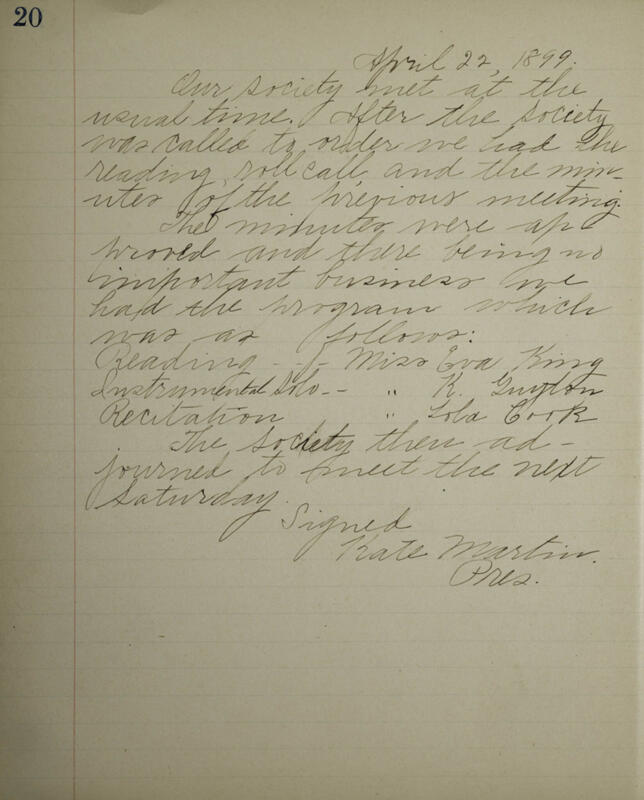 20
April 22, 1899.
Our society met at the
usual time. After the society
was called to order we had the
reading, roll call, and the min-
utes of the previous meeting.
The minutes were ap-
proved and there being no
important business we
had the program which
was as follows:
Reading - - - Miss Eva King
Instrumental Solo - - " K. Guyton
Recitation " Lola Cook
The society then ad-
journed to meet the next
Saturday.
Signed
Kate Martin.
Pres.